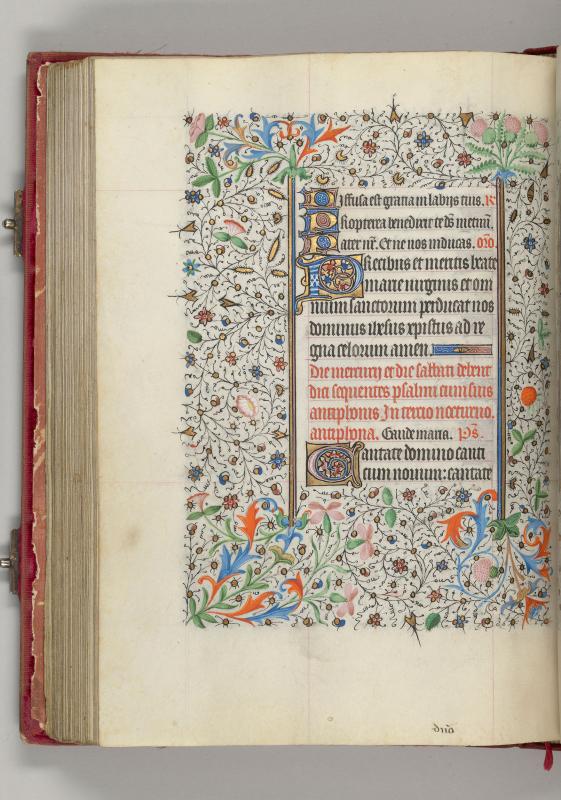 Diffusa est gratia in labijs tuis. R
Propterea benedixit te ds̄ in eternū.
Pater nr̄. Et ne nos inducas. oro.
Precibus et meritis beate
marie uirginis et om
nium sanctorum perducat nos
dominus ih̄esus xp̄istus ad re
gna celorum amen
Die mercurij et die sabbati debent
dici sequentes psalmi cum suis
antiphonis. In tercio nocturno.
antiphona. Gaude maria. p̄s.
Cantate domino canti
cum nouum: cantate